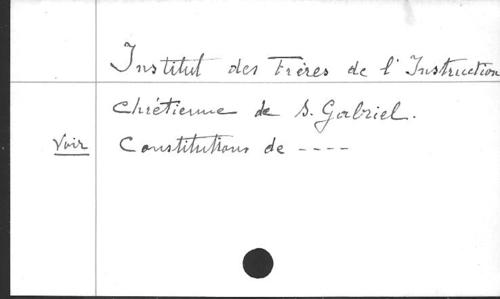 Institut des Frères de l'Instruction
Chrétienne de S. Gabriel.
Voir Constitutions de ----